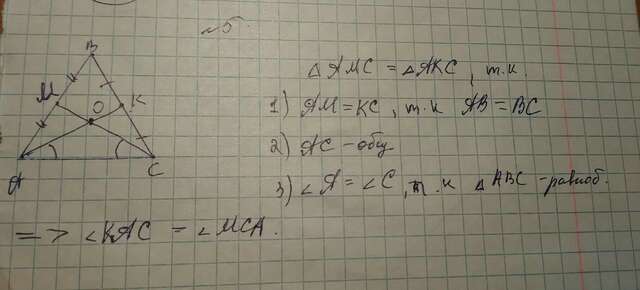 №5.
B
M
K
O
A
C
△AMC = △AKC, т.к.
1) AM = KC, т.к AB = BC
2) AC - общ
3) ∠A = ∠C, т.к △ABC - равноб.
=> ∠KAC = ∠MCA.